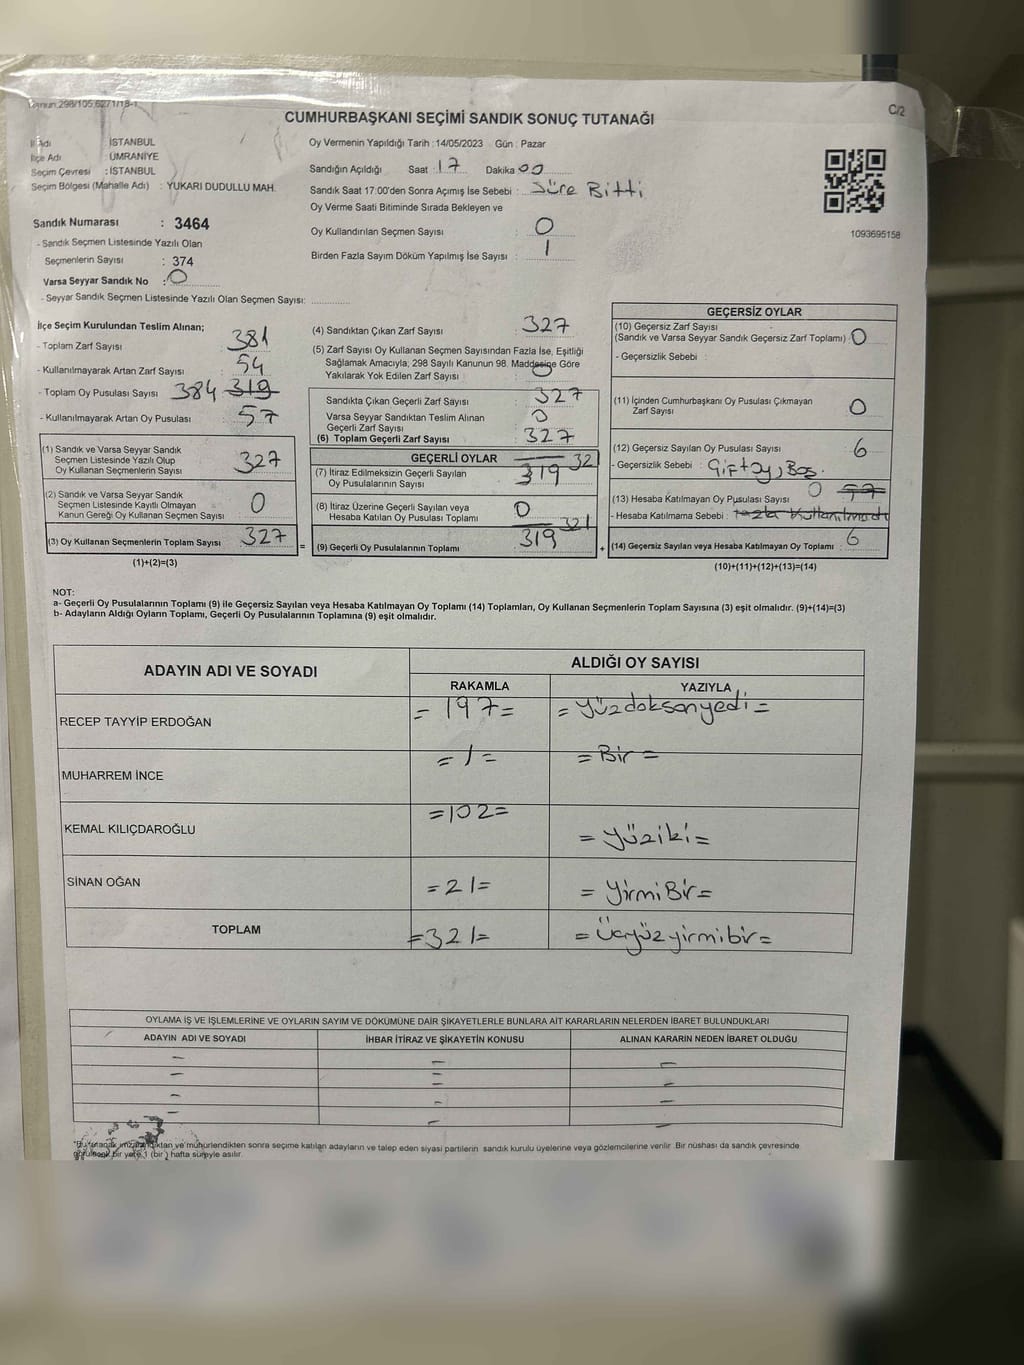 298/105,6271/18-1
C/2
CUMHURBAŞKANI SEÇİMİ SANDIK SONUÇ TUTANAĞI
İl Adı : İSTANBUL
İlçe Adı : ÜMRANİYE
Seçim Çevresi : İSTANBUL
Seçim Bölgesi (Mahalle Adı) : YUKARI DUDULLU MAH.
Sandık Numarası : 3464
- Sandık Seçmen Listesinde Yazılı Olan
Seçmenlerin Sayısı : 374
Varsa Seyyar Sandık No : 0
- Seyyar Sandık Seçmen Listesinde Yazılı Olan Seçmen Sayısı:
Oy Vermenin Yapıldığı Tarih : 14/05/2023 Gün : Pazar
Sandığın Açıldığı Saat : 17 Dakika : 00
Sandık Saat 17:00'den Sonra Açımış İse Sebebi : Süre Bitti
Oy Verme Saati Bitiminde Sırada Bekleyen ve
Oy Kullandırılan Seçmen Sayısı : 0
Birden Fazla Sayım Döküm Yapılmış İse Sayısı : 1
1093695158
İlçe Seçim Kurulundan Teslim Alınan;
- Toplam Zarf Sayısı : 381
- Kullanılmayarak Artan Zarf Sayısı : 54
- Toplam Oy Pusulası Sayısı 384 319
- Kullanılmayarak Artan Oy Pusulası : 57
(1) Sandık ve Varsa Seyyar Sandık
Seçmen Listesinde Yazılı Olup
Oy Kullanan Seçmenlerin Sayısı 327
(2) Sandık ve Varsa Seyyar Sandık
Seçmen Listesinde Kayıtlı Olmayan
Kanun Gereği Oy Kullanan Seçmen Sayısı 0
(3) Oy Kullanan Seçmenlerin Toplam Sayısı 327 =
(1)+(2)=(3)
(4) Sandıktan Çıkan Zarf Sayısı : 327
(5) Zarf Sayısı Oy Kullanan Seçmen Sayısından Fazla İse, Eşitliği
Sağlamak Amacıyla, 298 Sayılı Kanunun 98. Maddesine Göre
Yakılarak Yok Edilen Zarf Sayısı : 0
Sandıkta Çıkan Geçerli Zarf Sayısı : 327
Varsa Seyyar Sandıktan Teslim Alınan
Geçerli Zarf Sayısı : 0
(6) Toplam Geçerli Zarf Sayısı : 327
GEÇERLİ OYLAR
(7) İtiraz Edilmeksizin Geçerli Sayılan
Oy Pusulalarının Sayısı : 319 321
(8) İtiraz Üzerine Geçerli Sayılan veya
Hesaba Katılan Oy Pusulası Toplamı : 0
(9) Geçerli Oy Pusulalarının Toplamı : 319 321 +
GEÇERSİZ OYLAR
(10) Geçersiz Zarf Sayısı
(Sandık ve Varsa Seyyar Sandık Geçersiz Zarf Toplamı) : 0
- Geçersizlik Sebebi :
(11) İçinden Cumhurbaşkanı Oy Pusulası Çıkmayan
Zarf Sayısı : 0
(12) Geçersiz Sayılan Oy Pusulası Sayısı : 6
- Geçersizlik Sebebi : Çift oy, Boş.
(13) Hesaba Katılmayan Oy Pusulası Sayısı : 0 57
- Hesaba Katılmama Sebebi : fazla Kullanılmadı
(14) Geçersiz Sayılan veya Hesaba Katılmayan Oy Toplamı : 6
(10)+(11)+(12)+(13)=(14)
NOT:
a- Geçerli Oy Pusulalarının Toplamı (9) ile Geçersiz Sayılan veya Hesaba Katılmayan Oy Toplamı (14) Toplamları, Oy Kullanan Seçmenlerin Toplam Sayısına (3) eşit olmalıdır. (9)+(14)=(3)
b- Adayların Aldığı Oyların Toplamı, Geçerli Oy Pusulalarının Toplamına (9) eşit olmalıdır.
ADAYIN ADI VE SOYADI ALDIĞI OY SAYISI
RAKAMLA YAZIYLA
RECEP TAYYİP ERDOĞAN = 197 = = Yüzdoksanyedi =
MUHARREM İNCE = 1 = = Bir =
KEMAL KILIÇDAROĞLU =102= = Yüziki =
SİNAN OĞAN =21= = YirmiBir =
TOPLAM =321= = Üçyüzyirmibir =
OYLAMA İŞ VE İŞLEMLERİNE VE OYLARIN SAYIM VE DÖKÜMÜNE DAİR ŞİKAYETLERLE BUNLARA AİT KARARLARIN NELERDEN İBARET BULUNDUKLARI
ADAYIN ADI VE SOYADI İHBAR İTİRAZ VE ŞİKAYETİN KONUSU ALINAN KARARIN NEDEN İBARET OLDUĞU
*Bu tutanak imzalandıktan ve mühürlendikten sonra seçime katılan adayların ve talep eden siyasi partilerin sandık kurulu üyelerine veya gözlemcilerine verilir. Bir nüshası da sandık çevresinde
görülecek bir yere 1 (bir) hafta süreyle asılır.